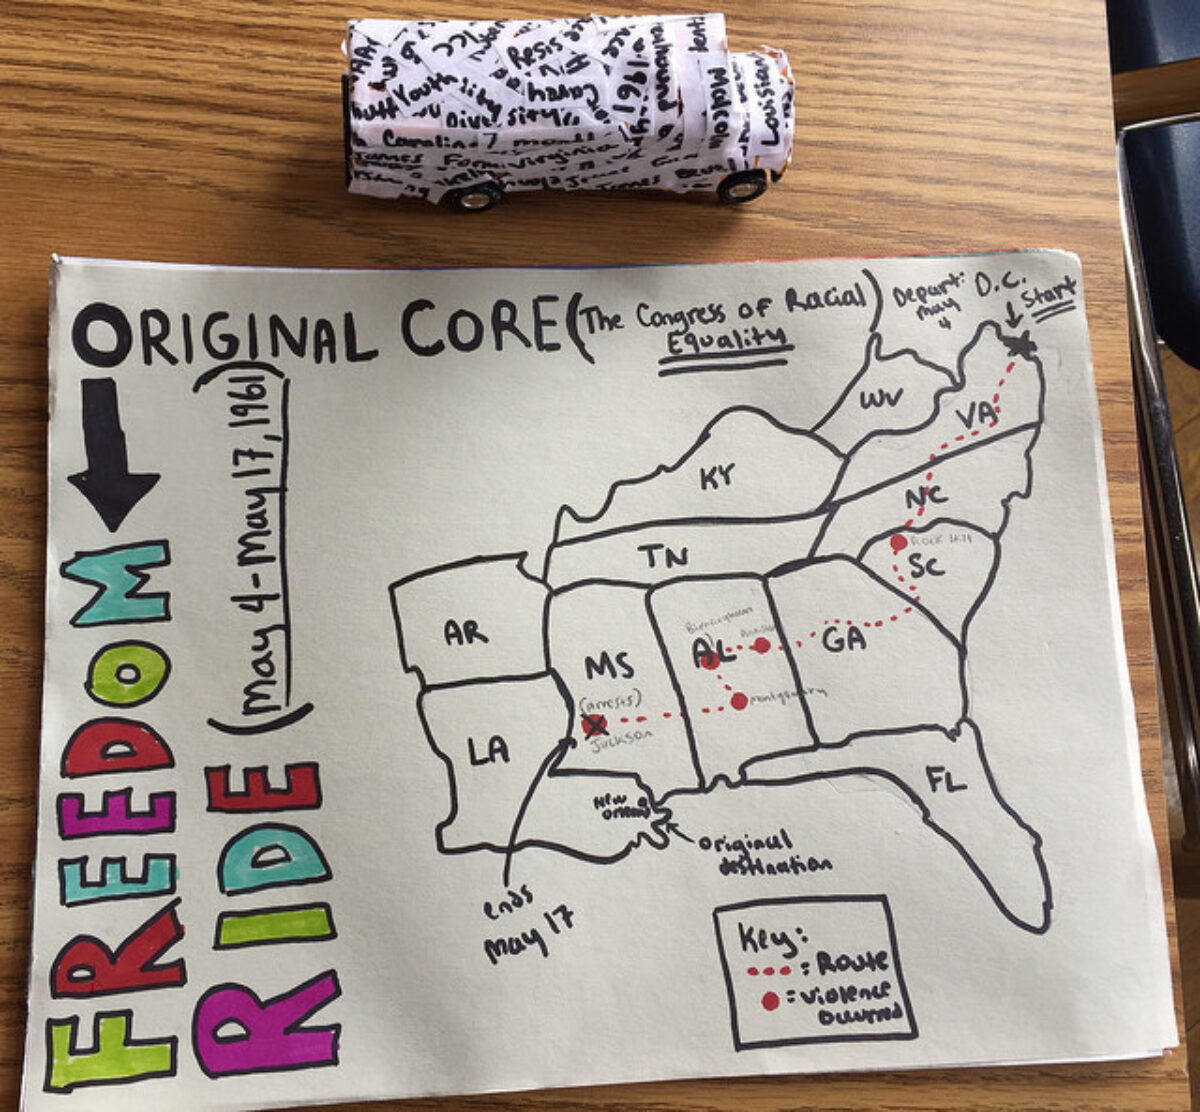 Resis
1961
Youth
Diversity
Malcolm
Louisian
Carolina 7 month
James Form Virginia
ORIGINAL CORE (The Congress of Racial)
Equality
Depart: D.C.
may
4
Start
FREEDOM
RIDE (May 4-May 17, 1961)
WV
VA
KY
NC
TN
Rock Hill
SC
AR
Birmingham
Anniston
MS
AL
GA
(arrests)
Montgomery
Jackson
LA
FL
New
Orleans
original
destination
ends
may 17
Key:
= Route
= Violence
Occurred